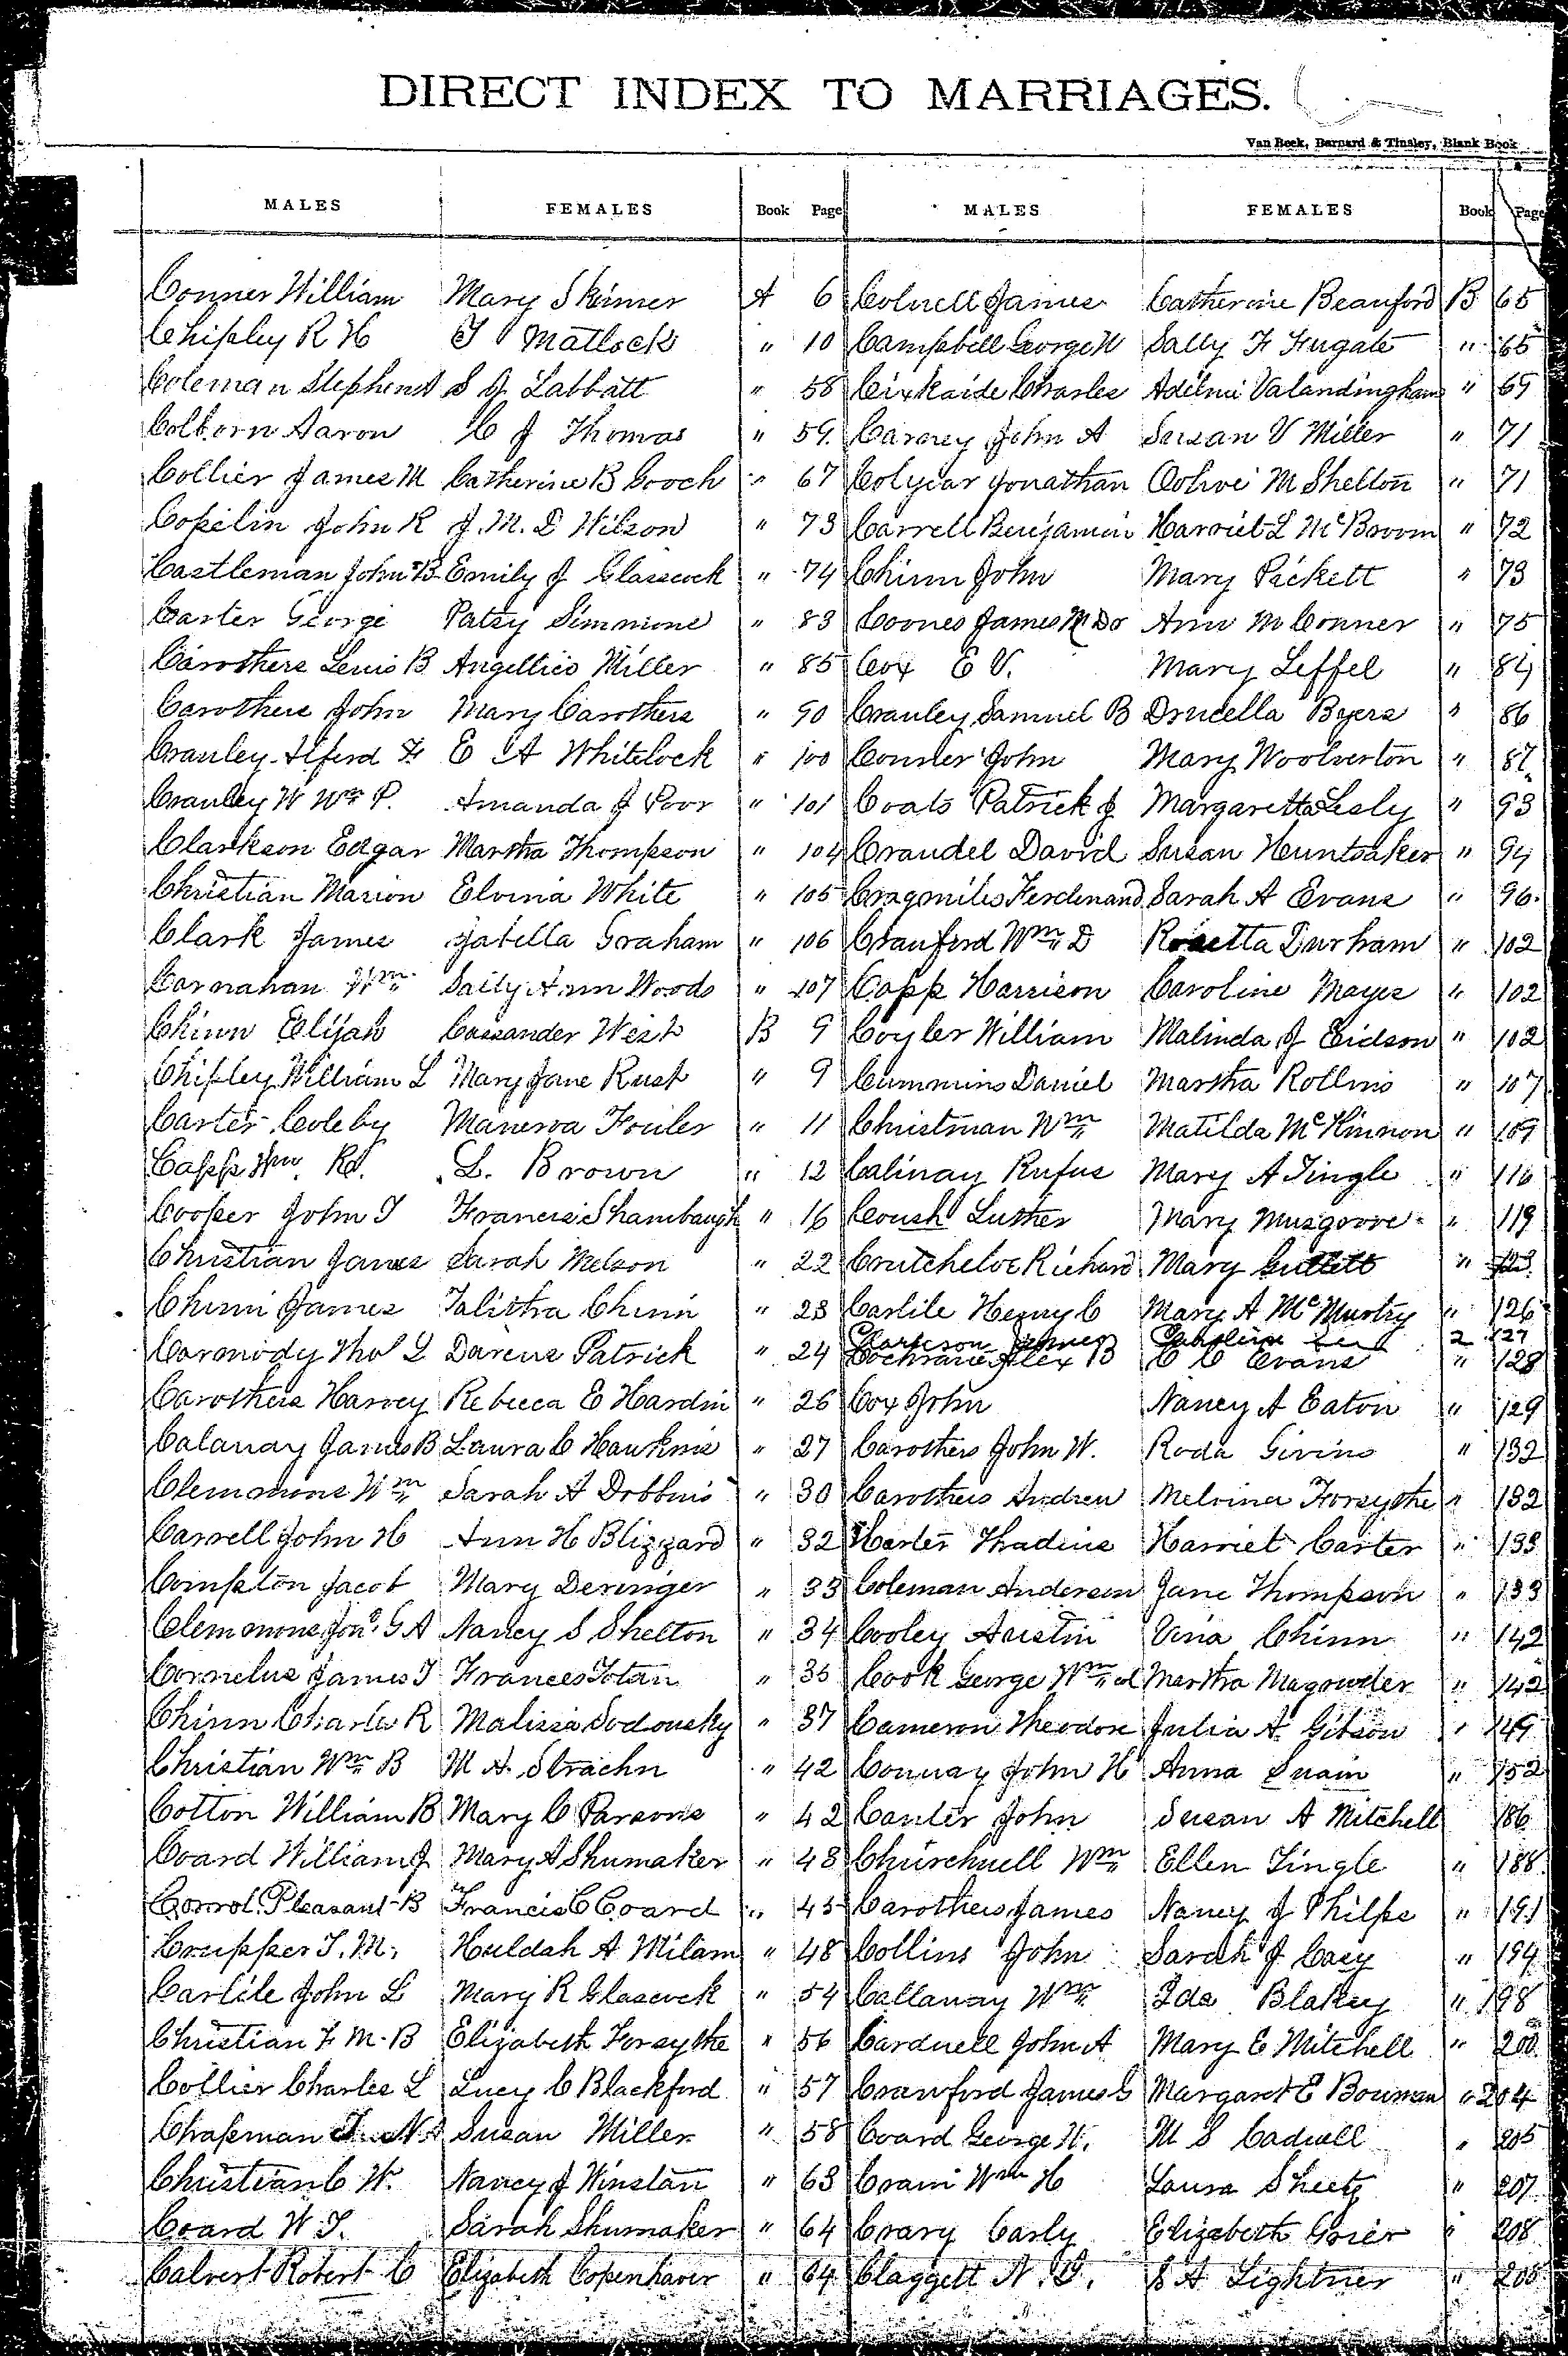 DIRECT INDEX TO MARRIAGES.
Van Beek, Barnard & Tinsley, Blank Book
MALES FEMALES Book Page MALES FEMALES Book Page
Conner William Mary Skinner A 6 Colwell James Catherine Beauford B 65
Chipley R H T Matlock " 10 Campbell George W Sally F Fugate " 65
Coleman Stephen A S J Labbatt " 58 Charles Valandingham " 69
Colborn Aaron C J Thomas " 59 Carney John A Susan V Miller " 71
Collier James M Catherine B Gooch " 67 Colyear Jonathan M Shelton " 71
Copelin John R J. M. D Wilson " 73 Carrell Benjamin Harriet L McBroom " 72
Castleman John B Emily J Glasscock " 74 Chinn John Mary Pickett " 73
Carter George Patsy Simmione " 83 Coones James Ann M Conner " 75
Carothers Lewis B Angellico Miller " 85 Cox E V. Mary Leffel " 84
Carothers John Mary Carothers " 90 Crauley Samuel B Drucella Byers " 86
Crauley Alferd F E A Whitelock " 100 John Mary Woolverton " 87
Crauley W Wm P. Amanda J Poor " 101 Coats Patrick J Margaretta Lesly " 93
Clarkson Edgar Martha Thompson " 104 Craudel David Susan Huntsaker " 94
Christian Marion Elvina White " 105 Cragmiles Ferdenand Sarah A Evans " 96
Clark James Izabella Graham " 106 Crauford Wm D Rosetta Durham " 102
Carnahan Wm Sally Ann Woods " 107 Capp Harrison Caroline Mayes " 102
Chinn Elijah Cassander West B 9 Coyler William Malinda J Eidson " 102
Chipley William L Mary Jane Rust " 9 Cummins Daniel Martha Rollins " 107
Carter Coleby Manerva Fouler " 11 Christman Wm Matilda McKinnon " 109
Capps Wm Rd. L. Brown " 12 Calinay Rufus Mary A Tingle " 116
Cooper John T Francis Shambaugh " 16 Coush Luther Mary Musgrove " 119
Christian James Sarah Melson " 22 Crutcheloe Richard Mary " 123
Chinn James Talitha Chinn " 23 Carlile Henry C Mary A McMurtry " 126
Clarkson James 2 127
Carmody Tho L Darcus Patrick " 24 Cochrane Alex B C C Evans " 128
Carothers Harvey Rebecca E Hardin " 26 Cox John Nancy A Eaton " 129
Calauay James B Laura C Hawkins " 27 Carothers John W. Roda Givins " 132
Clemmons Wm Sarah A Dobbins " 30 Carothers Andrew Melvina Forsythe " 132
Carrell John H Ann H Blizzard " 32 Carter Thadius Harriet Carter " 133
Compton Jacob Mary Deringer " 33 Coleman Anderson Jane Thompson " 133
Clemmons Jno. G A Nancy S Shelton " 34 Cooley Austin Vina Chinn " 142
Cornelus James T Frances Totan " 35 Cook George Wm Martha Magowder " 142
Chinn Charles R Malissa Sodousky " 37 Cameron Theodore Julia A Gibson " 149
Christian Wm B M A Strachn " 42 Conway John H Anna Swain " 152
Cotton William B Mary C Parsons " 42 Canter John Susan A Mitchell 186
Coard William J Mary A Shumaker " 43 Churchwell Wm Ellen Tingle " 188
Corrol Pleasant B Francis C Coard " 45 Carothers James Nancy J Philps " 191
Crupper T. M. Huldah A Milam " 48 Collins John Sarah J Casy " 194
Carlile John L Mary R Glascock " 54 Callaway Wm Ida Blakey " 198
Christian F M. B Elizabeth Forsythe " 56 Cardwell John A Mary E Mitchell " 200
Collier Charles L Lucy C Blackford " 57 Crawford James G Margaret E Bowman " 204
Chapman Susan Miller " 58 Coard George W. M S Cadwell " 205
Christian C W. Nancy J Winslan " 63 Crain Wm H Laura Sheetz " 207
Coard W T. Sarah Shumaker " 64 Crary Carly Elizabeth Grier " 208
Calvert Robert C Elizabeth Copenhaver " 64 Claggett N. T. S A Lightner " 208